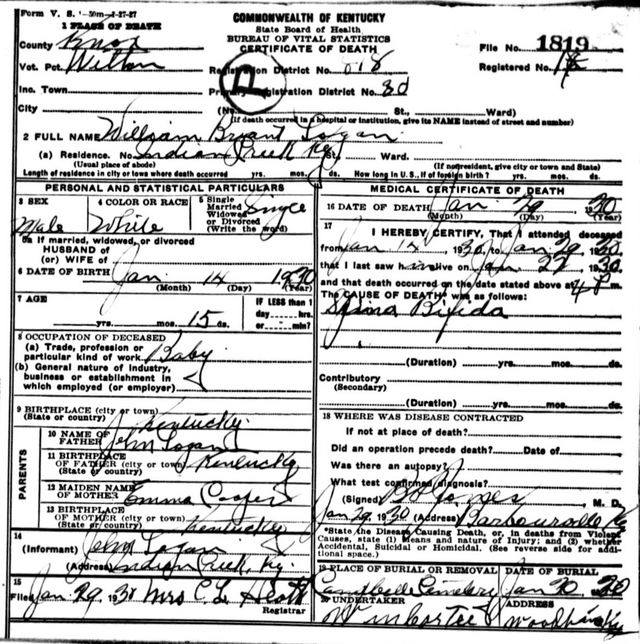 Form V. S. 1-50m-1-27-27
COMMONWEALTH OF KENTUCKY
State Board of Health
BUREAU OF VITAL STATISTICS
CERTIFICATE OF DEATH
1 PLACE OF DEATH
County Knox
File No. 1819
Vot. Pct. Wilton
Registration District No. 818
Registered No.
Inc. Town
Primary Registration District No.
City (No. St. Ward)
(If death occurred in a hospital or institution, give its NAME instead of street and number)
2 FULL NAME William Bryant Logan
(a) Residence. No. Indian Creek Ky St. Ward.
(Usual place of abode) (If nonresident, give city or town and State)
Length of residence in city or town where death occurred yrs. mos. ds. How long in U. S., if of foreign birth? yrs. mos. ds.
PERSONAL AND STATISTICAL PARTICULARS
3 SEX Male
4 COLOR OR RACE White
5 Single Married Widowed or Divorced (Write the word) Single
5a If married, widowed, or divorced
HUSBAND of
(or) WIFE of
6 DATE OF BIRTH Jan. 14 1930
(Month) (Day) (Year)
7 AGE
yrs. mos. 15 ds.
IF LESS than 1 day hrs. or min.?
8 OCCUPATION OF DECEASED
(a) Trade, profession or particular kind of work Baby
(b) General nature of industry, business or establishment in which employed (or employer)
9 BIRTHPLACE (city or town) (State or country) Kentucky
PARENTS
10 NAME OF FATHER John Logan
11 BIRTHPLACE OF FATHER (city or town) (State or country) Kentucky
12 MAIDEN NAME OF MOTHER Emma Cooper
13 BIRTHPLACE OF MOTHER (city or town) (State or country) Kentucky
14
(Informant) John Logan
(Address) Indian Creek, Ky.
15
Filed Jan 29 1930 Mrs C. L. Heath
Registrar
MEDICAL CERTIFICATE OF DEATH
16 DATE OF DEATH Jan. 29 1930
(Month) (Day) (Year)
17
I HEREBY CERTIFY, That I attended deceased
from Jan 14 1930, to Jan 29 1930,
that I last saw him alive on Jan 27 1930,
and that death occurred on the date stated above at 4 P. m.
The CAUSE OF DEATH* was as follows:
Spina Bifida
(Duration) yrs. mos. ds.
Contributory
(Secondary)
(Duration) yrs. mos. ds.
18 WHERE WAS DISEASE CONTRACTED
If not at place of death?
Did an operation precede death? Date of
Was there an autopsy?
What test confirmed diagnosis?
(Signed) Jones M. D.
Jan 29 1930 (Address) Barbourville Ky
*State the Disease Causing Death, or, in deaths from Violent Causes, state (1) Means and nature of Injury; and (2) whether Accidental, Suicidal or Homicidal. (See reverse side for additional space.)
19 PLACE OF BURIAL OR REMOVAL Campbell Cemetery
DATE OF BURIAL Jan 30 1930
20 UNDERTAKER
ADDRESS